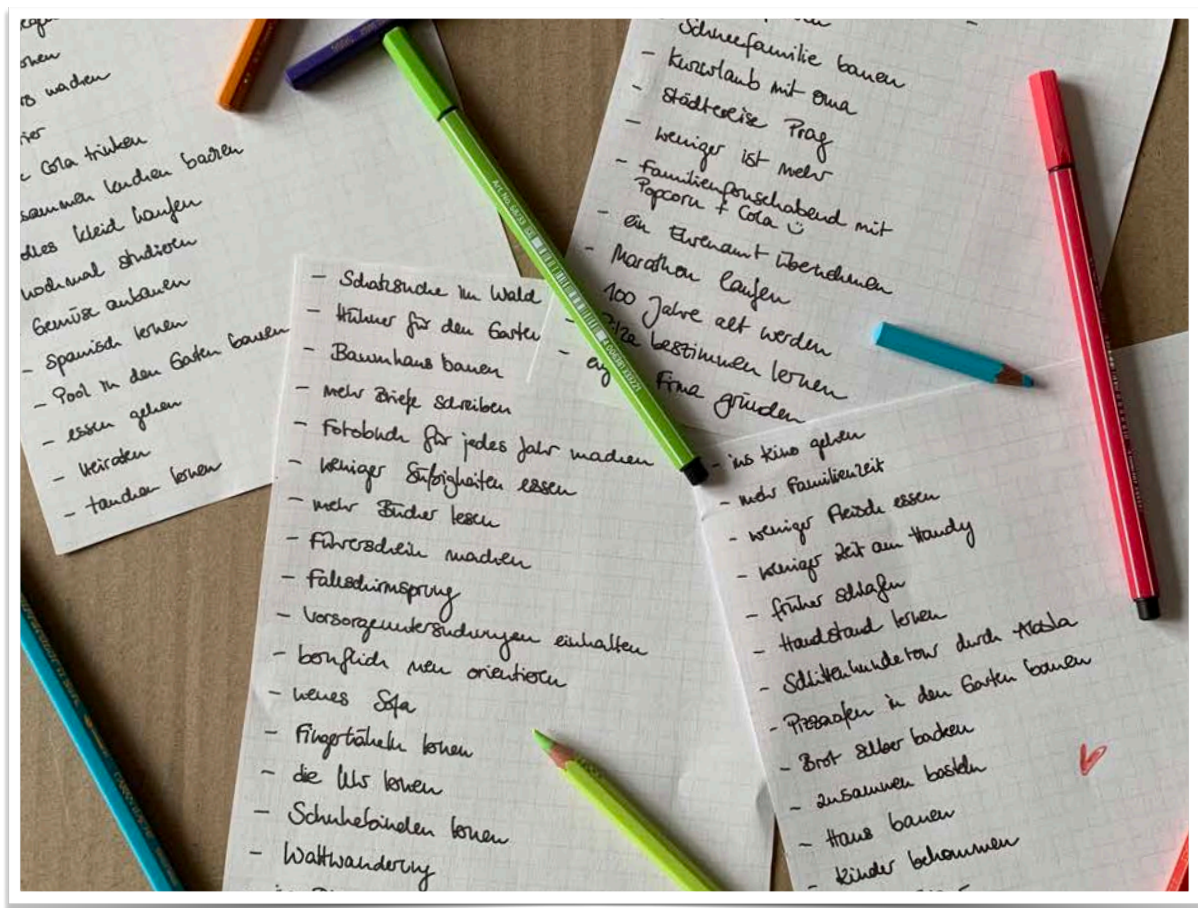 lernen
machen
Cola trinken
Kuchen backen
Kleid kaufen
nochmal studieren
Gemüse anbauen
- Spanisch lernen
- Pool in den Garten bauen
- essen gehen
- heiraten
- tauchen lernen
Schneefamilie bauen
- Kurzurlaub mit Oma
- Städtereise Prag
- weniger ist mehr
- Familienfernsehabend mit
Popcorn + Cola
- ein Ehrenamt übernehmen
- Marathon laufen
100 Jahre alt werden
bestimmen lernen
Firma gründen
- Schatzsuche im Wald
- Hühner für den Garten
- Baumhaus bauen
- mehr Briefe schreiben
- Fotobuch für jedes Jahr machen
- weniger Süßigkeiten essen
- mehr Bücher lesen
- Führerschein machen
- Fallschirmsprung
- Vorsorgeuntersuchungen einhalten
- beruflich neu orientieren
- neues Sofa
- Fingerhäkeln lernen
- die Uhr lernen
- Schuhebinden lernen
- Wattwanderung
- ins Kino gehen
- mehr Familienzeit
- weniger Fleisch essen
- weniger Zeit am Handy
- früher schlafen
- Handstand lernen
- Schlittenhundetour durch Alaska
- Pizzaofen in den Garten bauen
- Brot selber backen
- zusammen basteln
- Haus bauen
- Kinder bekommen
Art.No.68/33